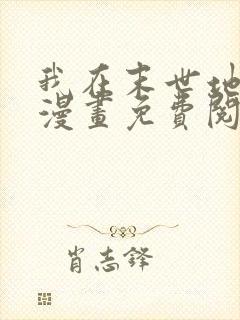 我在末世地
漫畫免費閱
肖志鋒